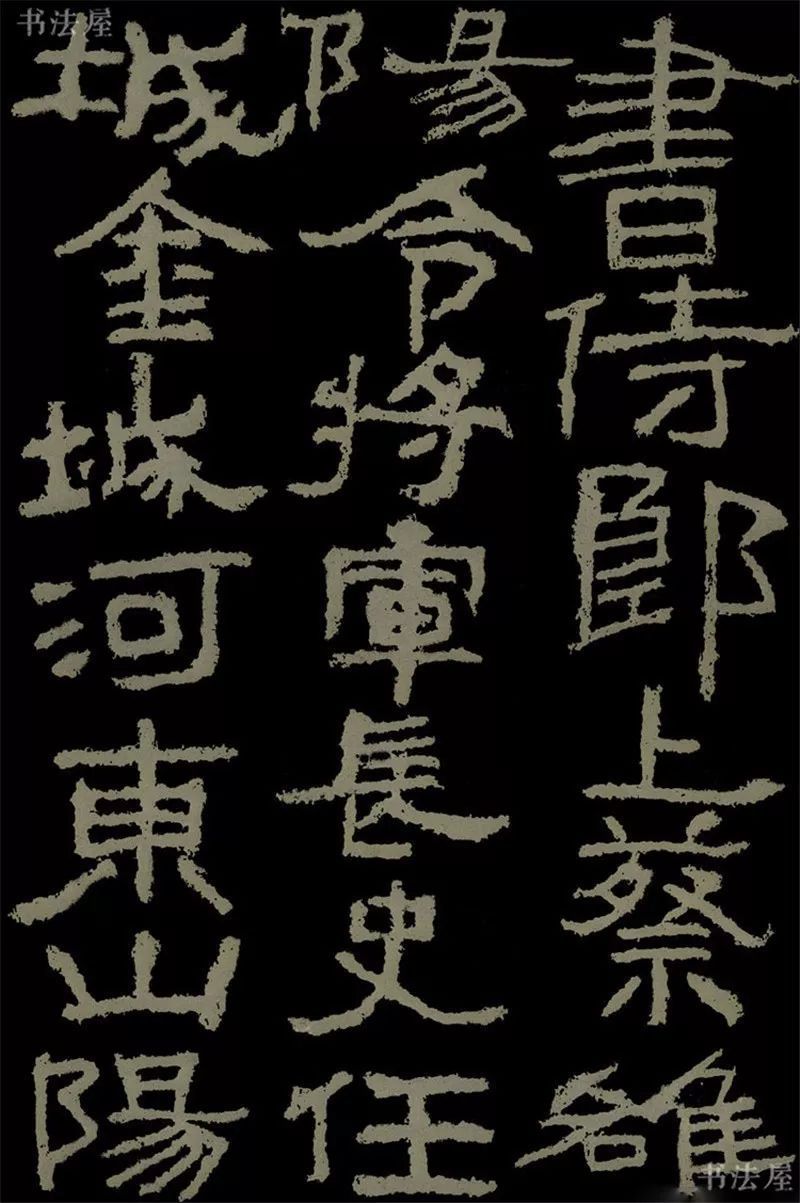 書侍郎上蔡雒
陽令將軍長史任
城金城河東山陽
书法屋
书法屋